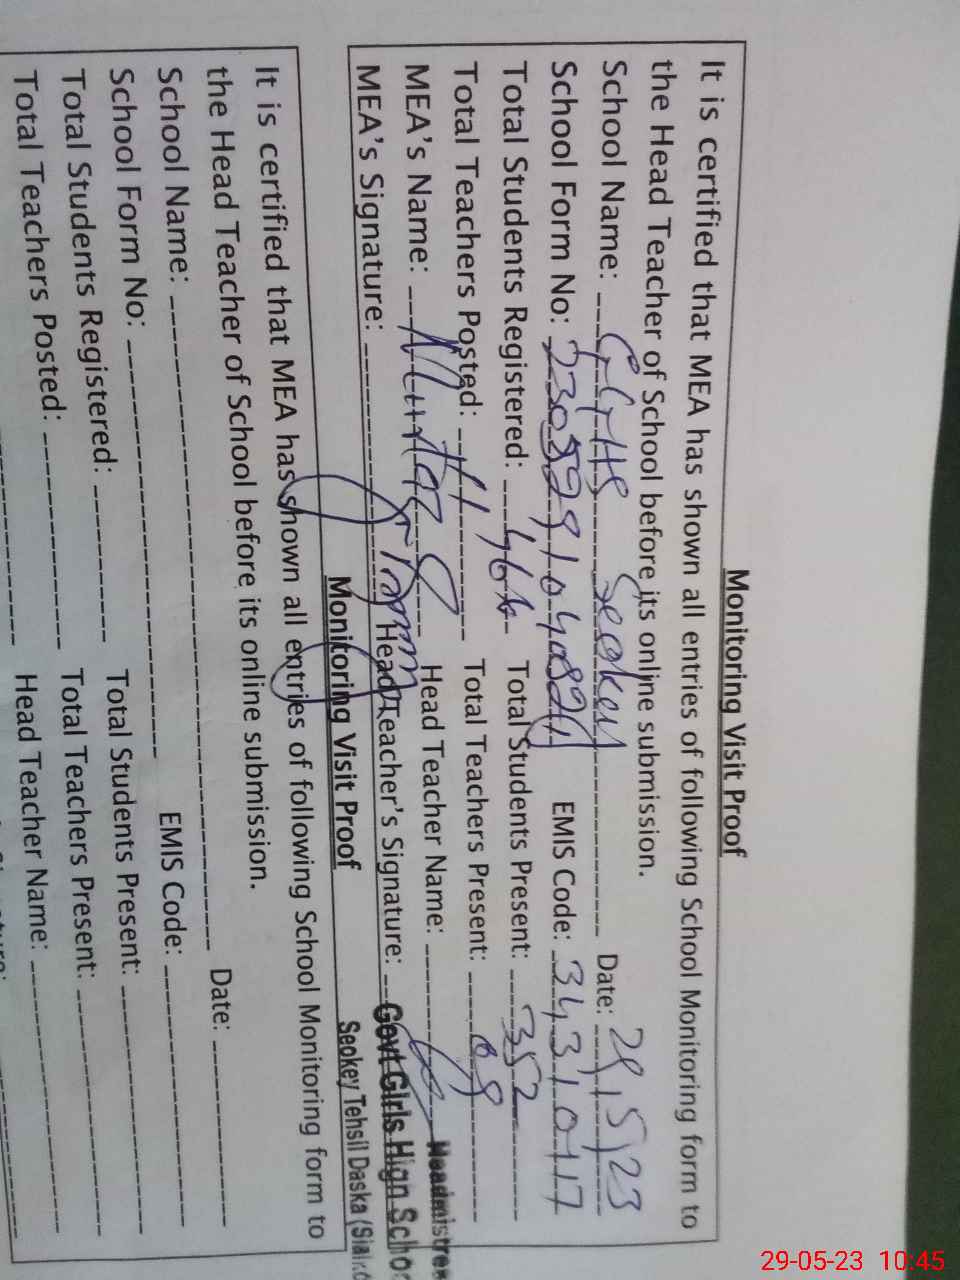 Monitoring Visit Proof
It is certified that MEA has shown all entries of following School Monitoring form to
the Head Teacher of School before its online submission.
School Name: GGHS Seokey Date: 29/5/23
School Form No: EMIS Code: 34310117
Total Students Registered: 466 Total Students Present: 352
Total Teachers Posted: 11 Total Teachers Present: 09
MEA's Name: Head Teacher Name:
MEA's Signature: Head Teacher's Signature:
Headmistress
Govt Girls High School
Seokey Tehsil Daska
Monitoring Visit Proof
It is certified that MEA has shown all entries of following School Monitoring form to
the Head Teacher of School before its online submission.
School Name: Date:
School Form No: EMIS Code:
Total Students Registered: Total Students Present:
Total Teachers Posted: Total Teachers Present:
Head Teacher Name:
29-05-23 10:45